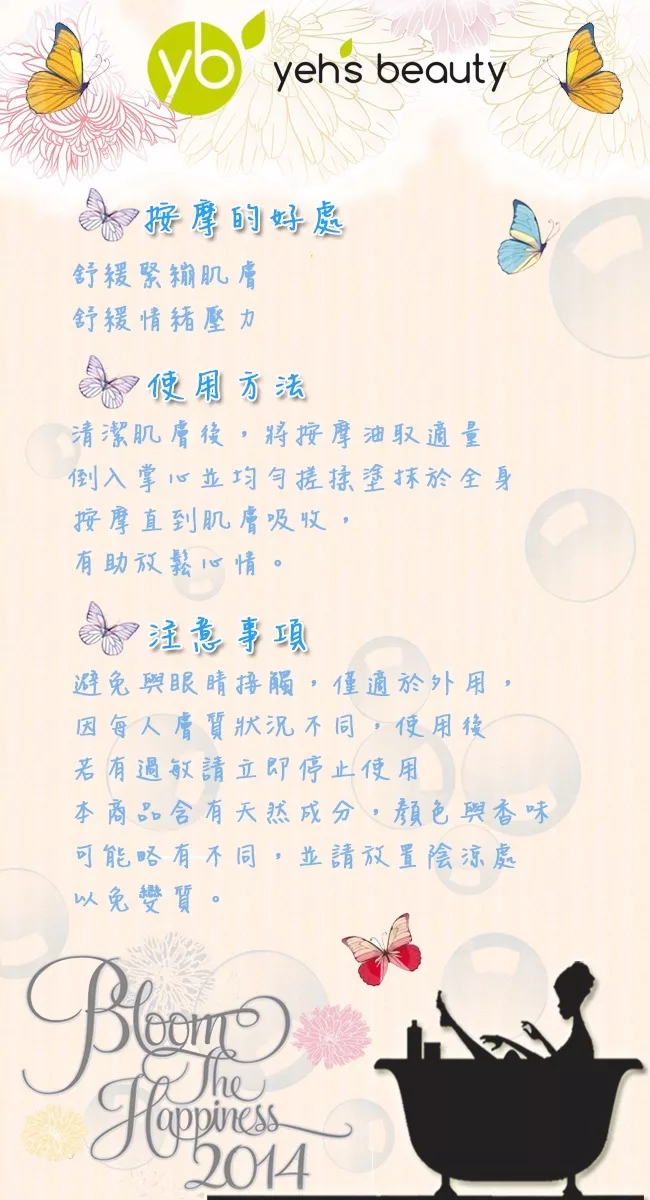 yb yeh's beauty
按摩的好處
舒緩緊繃肌膚
舒緩情緒壓力
使用方法
清潔肌膚後，將按摩油取適量
倒入掌心並均勻搓揉塗抹於全身
按摩直到肌膚吸收，
有助放鬆心情。
注意事項
避免與眼睛接觸，僅適於外用，
因每人膚質狀況不同，使用後
若有過敏請立即停止使用
本商品含有天然成分，顏色與香味
可能略有不同，並請放置陰涼處
以免變質。
Bloom
The
Happiness
2014